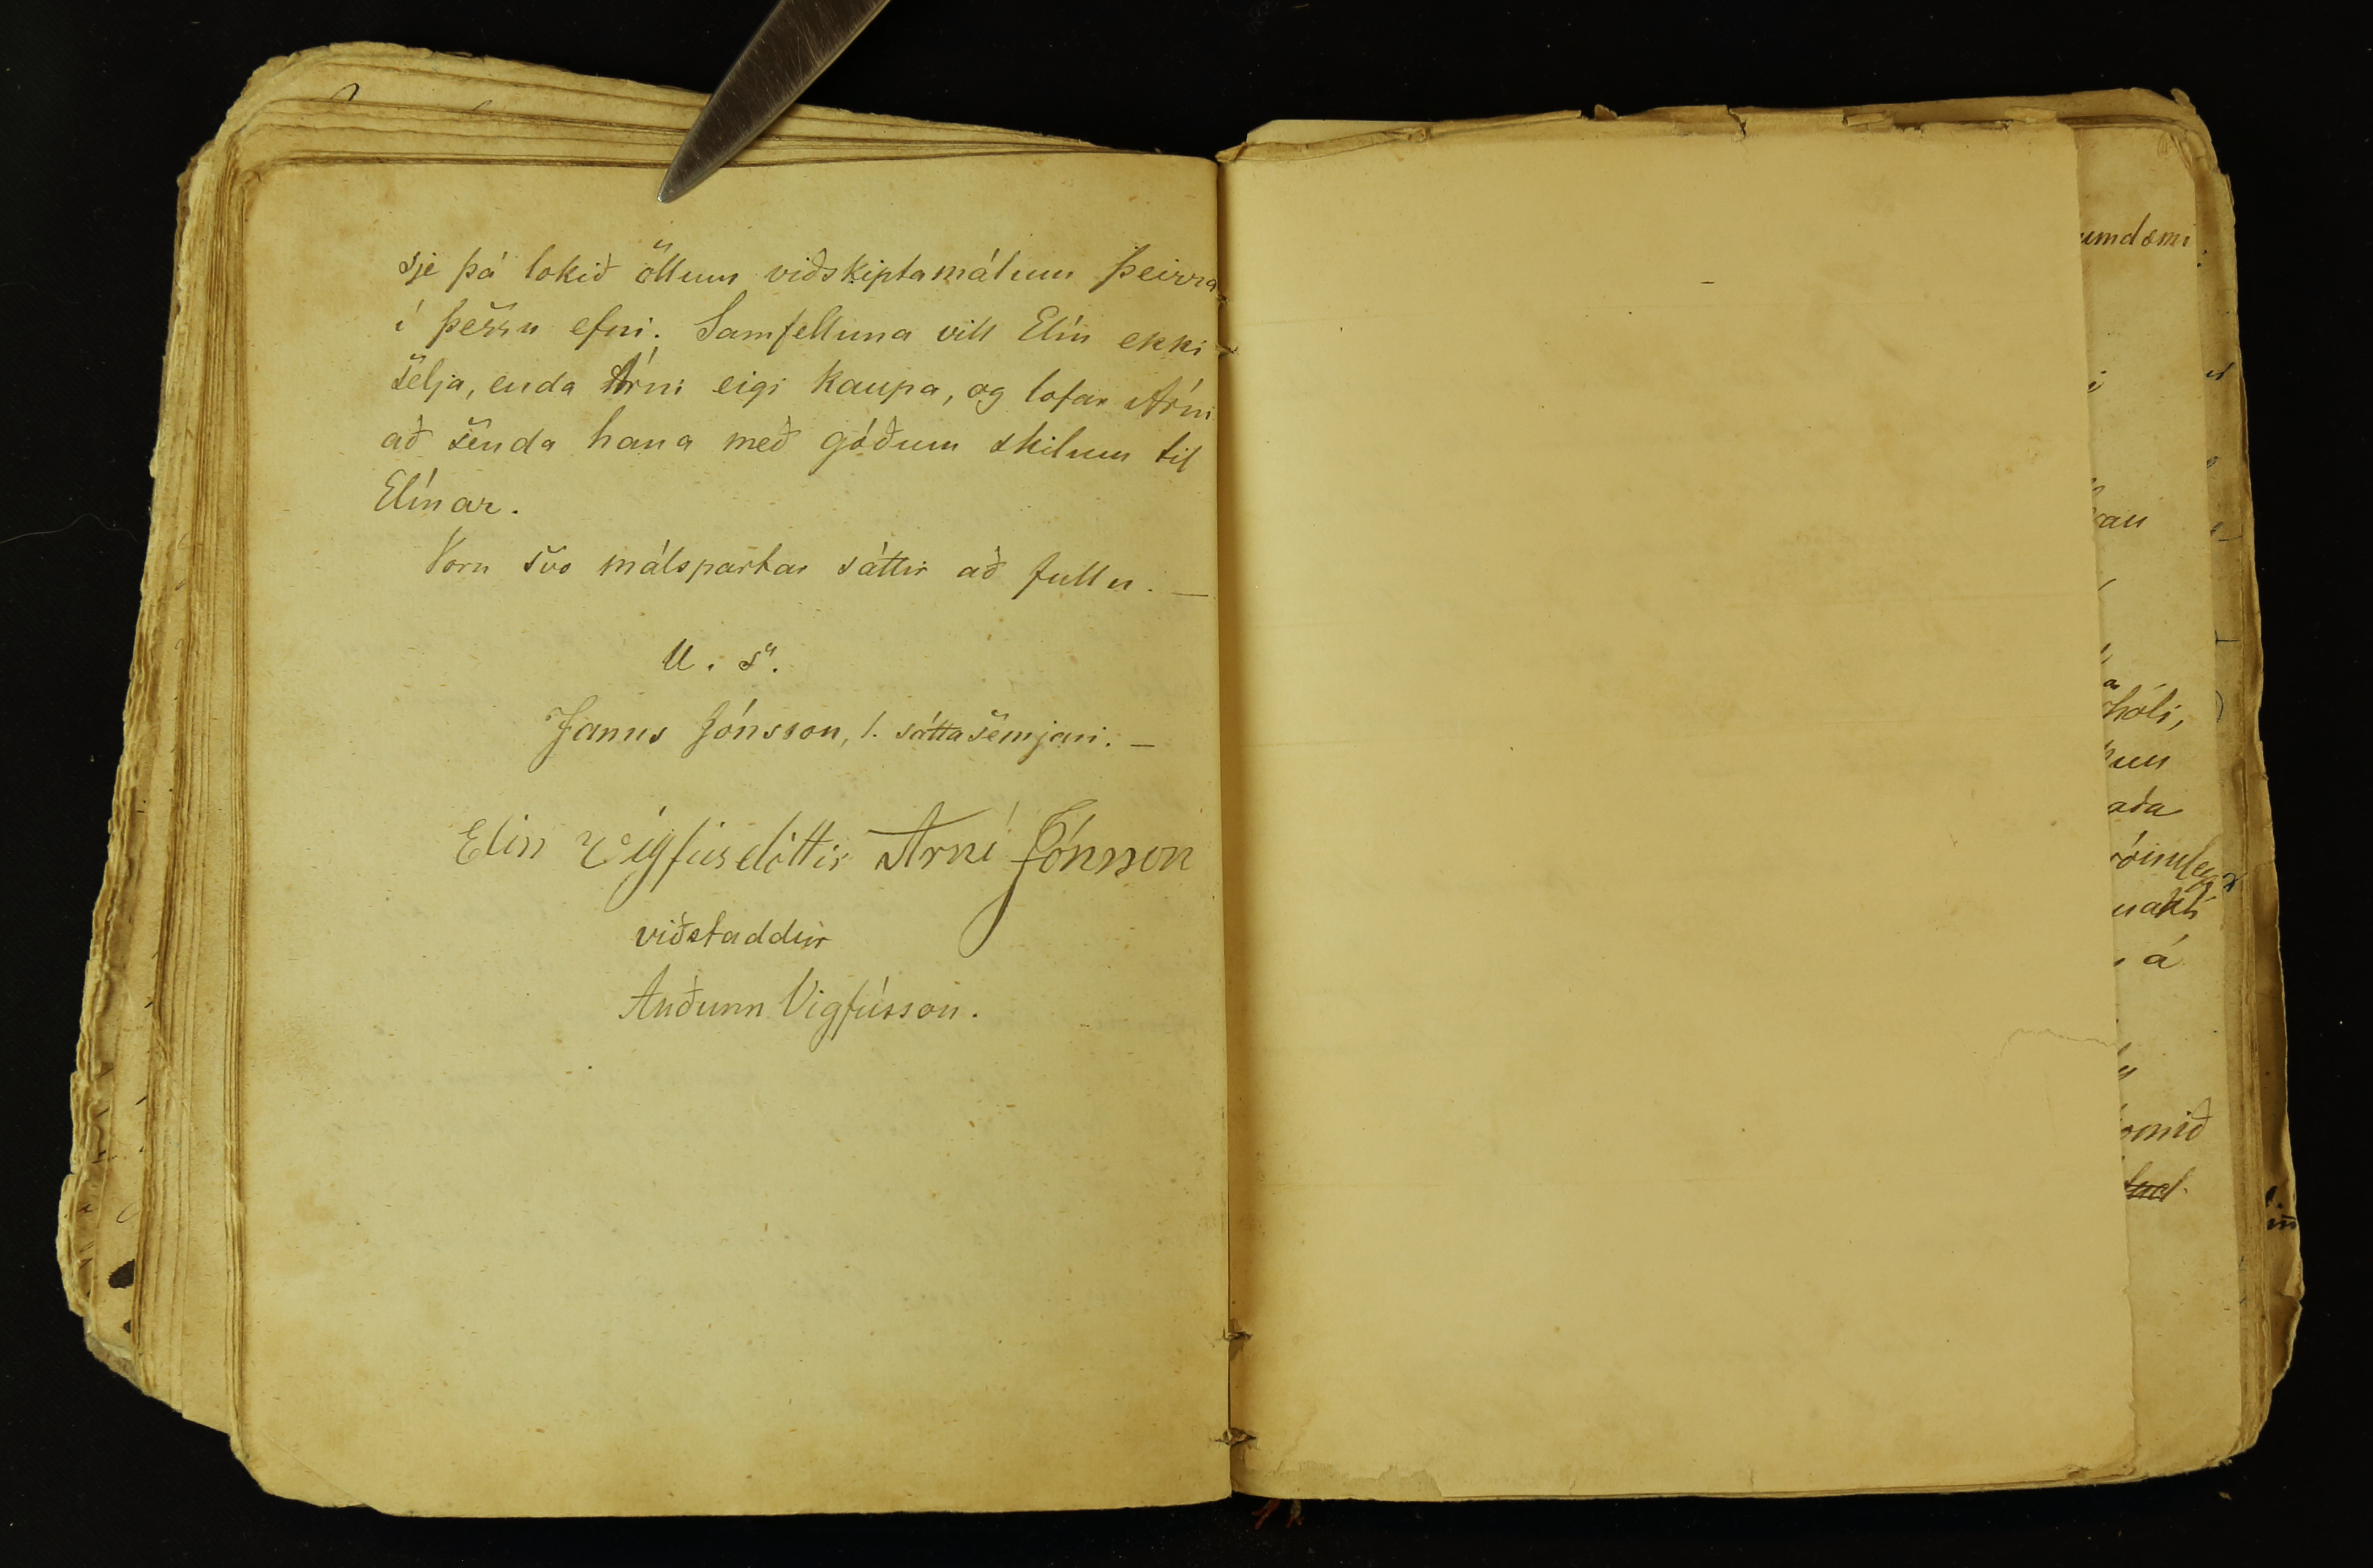 sje þá lokið öllum viðskiptamálum þeirra
í þessu efni. Samfelluna vill Elín ekki
selja, enda Árni eigi kaupa, og lofar Árni
að senda hana með góðum skilum til
Elínar.
Voru svo málspartar sáttir að fullu. —
U. s.
Janus Jónsson, l. sáttasemjari. —
Elin Vigfúsdóttir Arni Jónsson
viðstaddur
Auðunn Vigfússon.
umdæmi
hóli,
aða
á